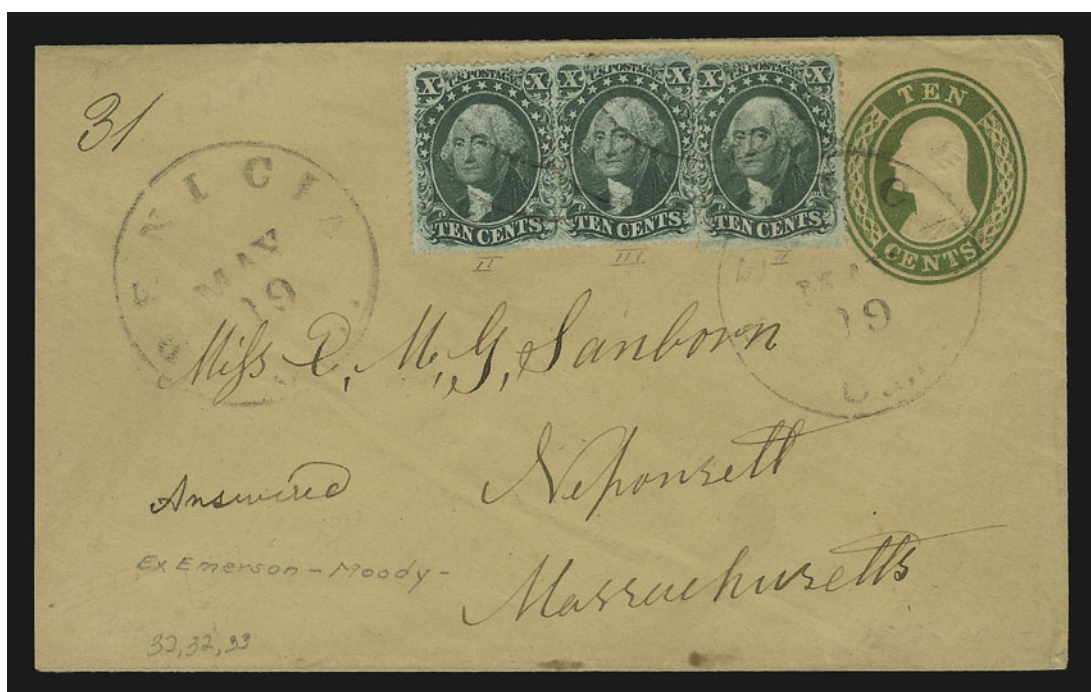 31
X U.S. POSTAGE X X U.S. POSTAGE X X U.S. POSTAGE X
TEN CENTS TEN CENTS TEN CENTS
TEN
CENTS
II III II
BENICIA
MAY
19
19
Miss E. M. G. Sanborn
Neponsett
Massachusetts
Answered
Ex Emerson - Moody -
32, 32, 33